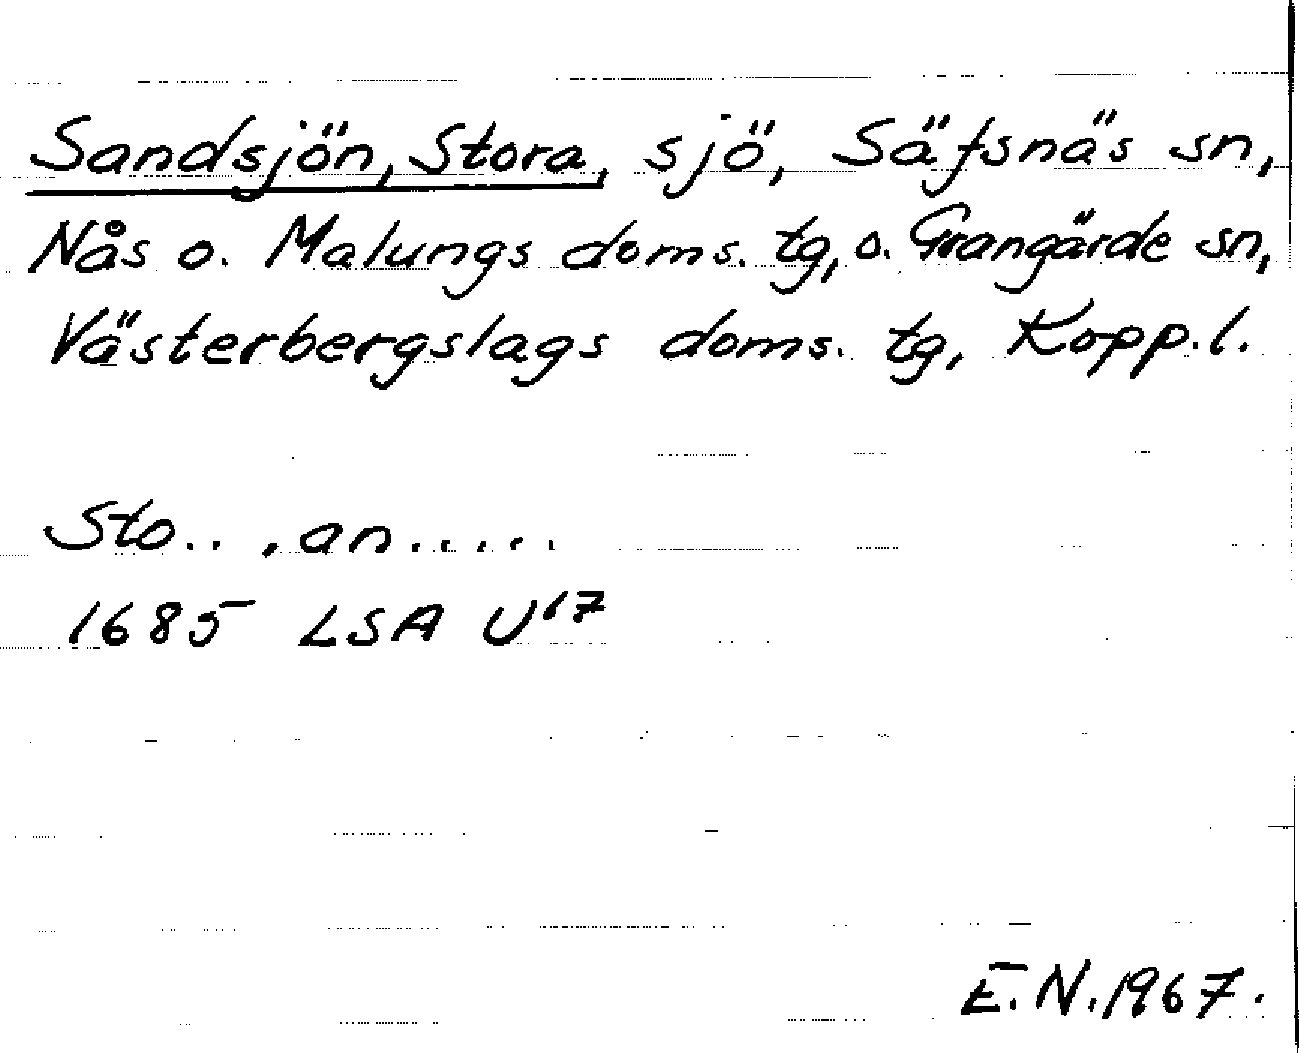 Sandsjön, Stora, sjö, Säfsnäs sn,
Nås o. Malungs doms. tg, o. Grangärde sn,
Västerbergslags doms. tg, Kopp.l.
Sto.. .an.....
1685 LSA U17
E.N.1967.